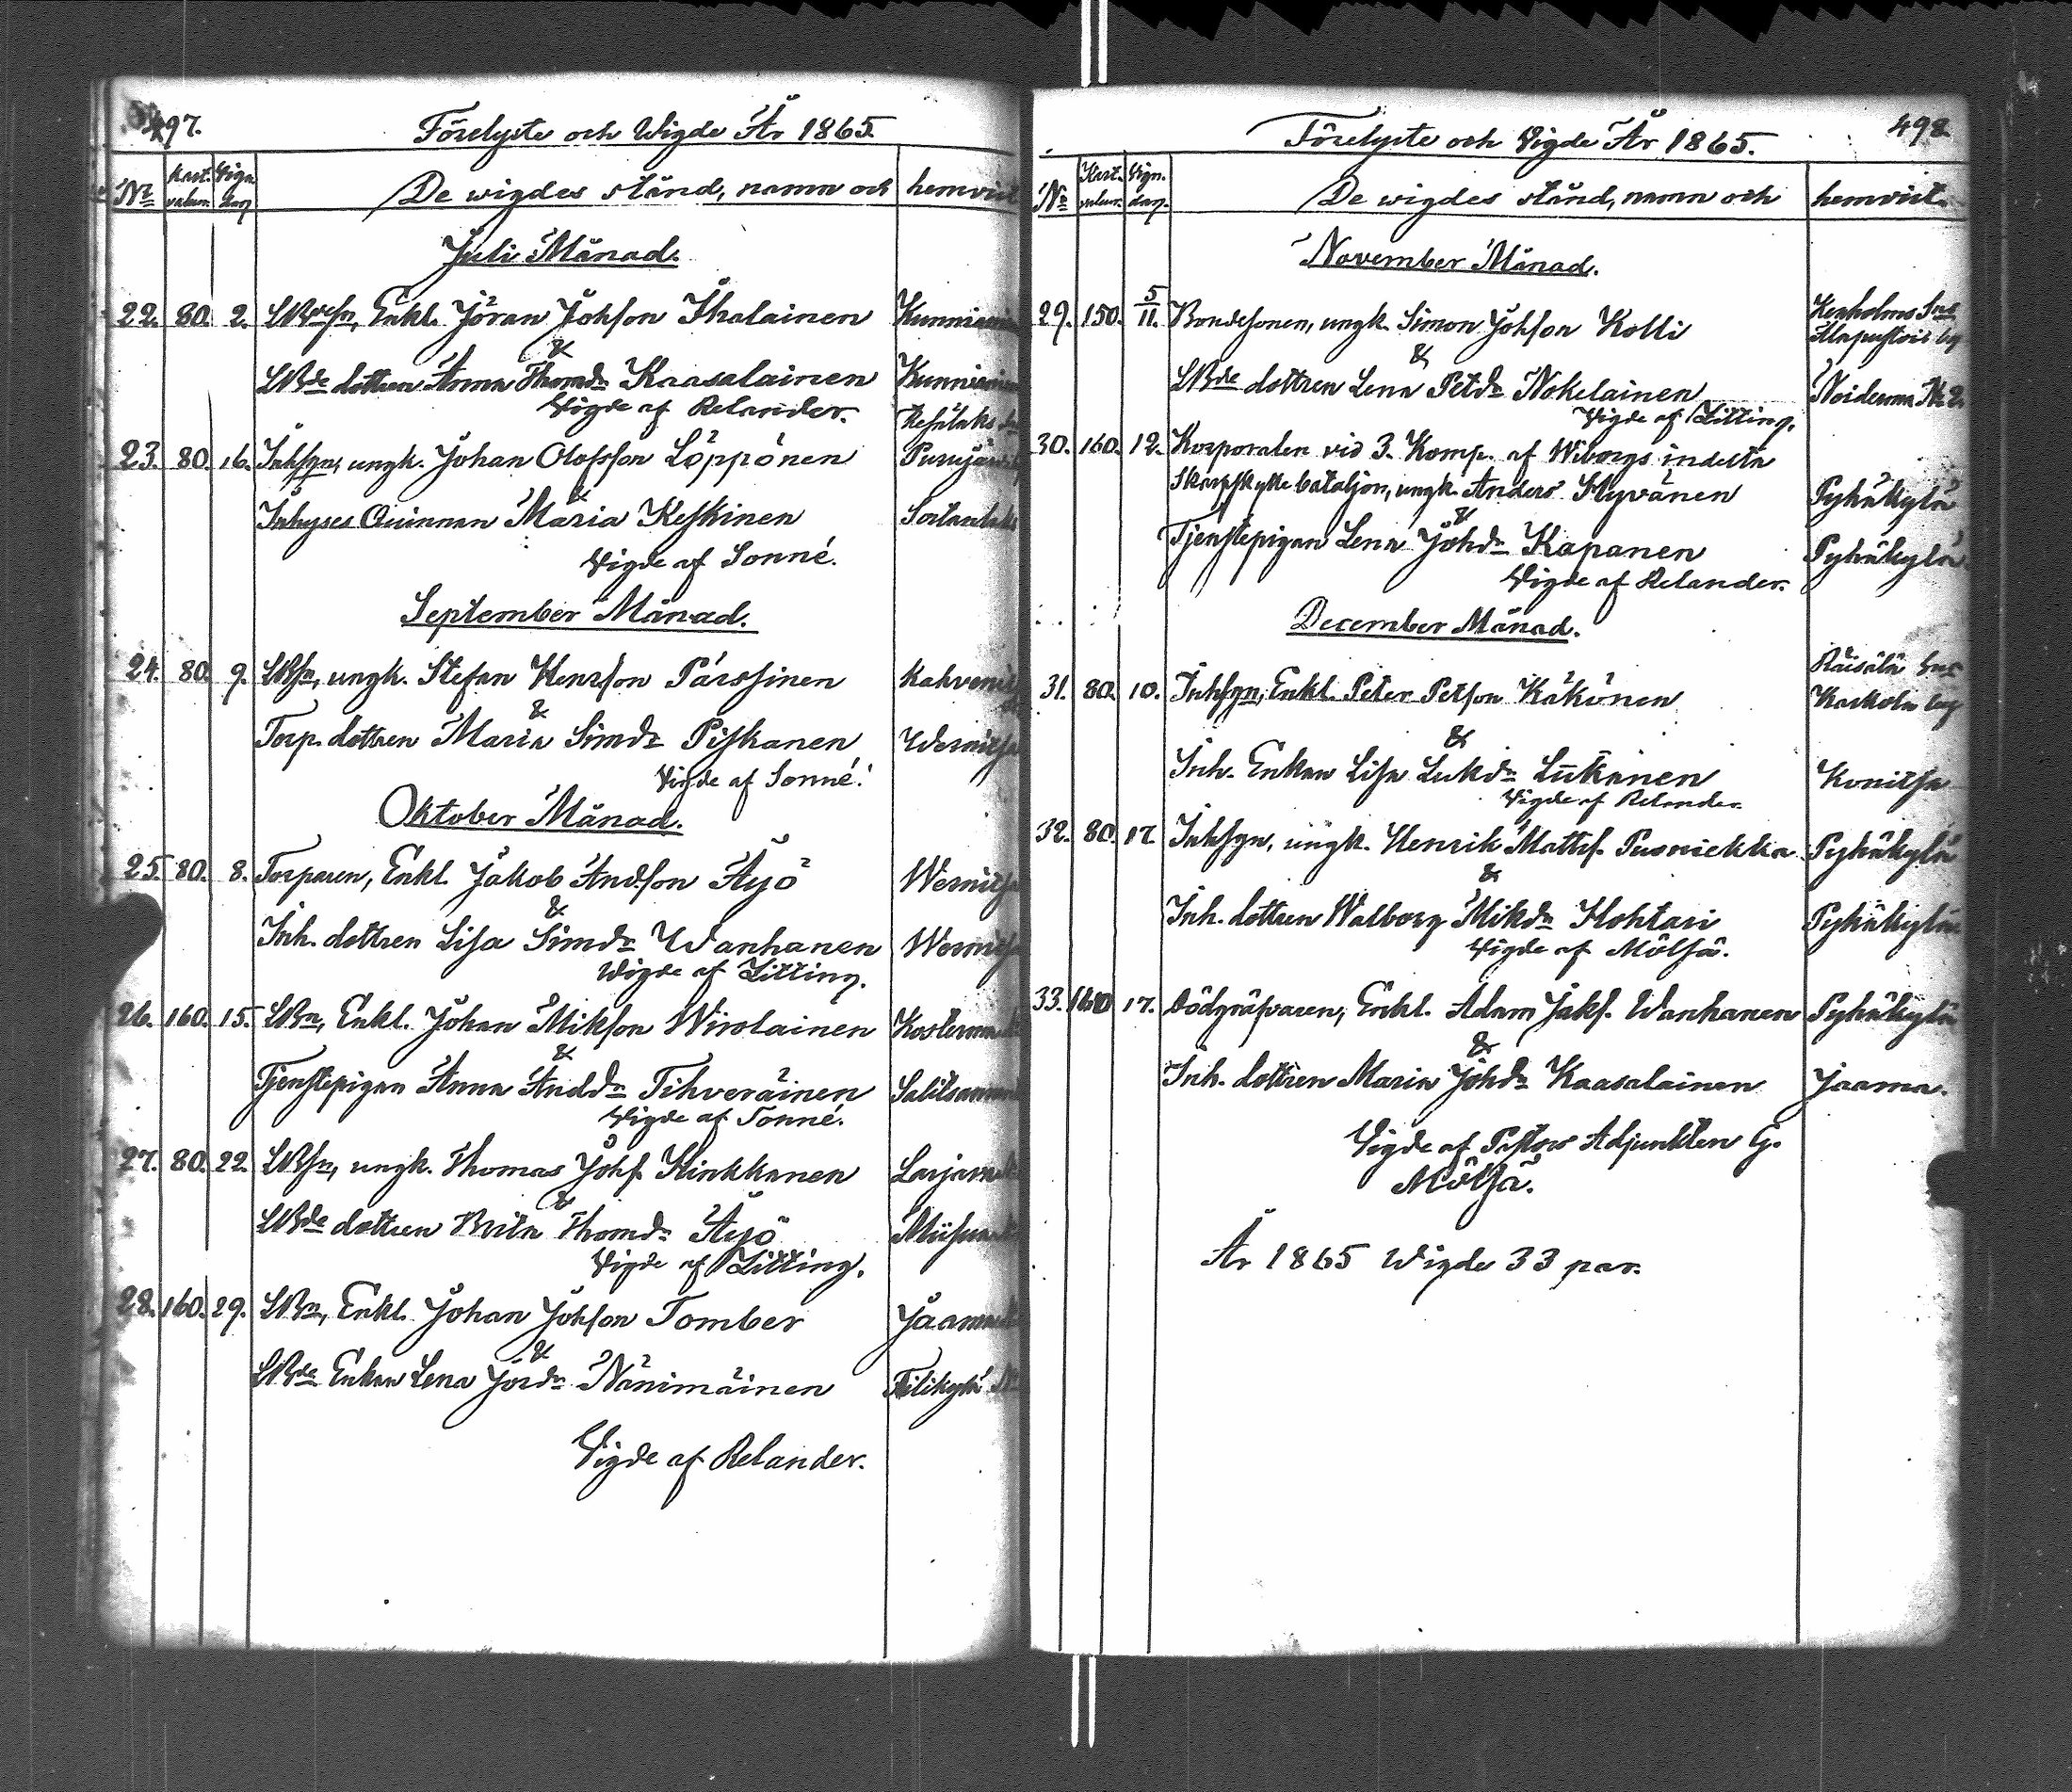 497.
Förelyste och Wigde År 1865.
No Kast. valum. Vign. dag De wigdes stånd, namn och hemvist
Juli Månad.
22. 80. 2. Enkl. Jöran Johsson Ihalainen
&
LBde dottren Anna Thomdr Kaasalainen
Vigde af Relander.
23. 80. 16. Inhsgn, ungk. Johan Olofsson Löppönen
&
Inhyses Quinnan Maria Keskinen
Vigde af Sonné.
September Månad.
24. 80. 9. LBsn, ungk. Stefan Henrsson Pärssinen
&
Torp. dottren Maria Simdr Piskanen
Vigde af Sonné.
Oktober Månad.
25. 80. 8. Torparen, Enkl. Jakob Andsson Äyö
&
Inh. dottren Lisa Simdr Wanhanen
Wigde af Zitting.
26. 160. 15. LBn, Enkl. Johan Miksson Wirolainen
&
Tjenstepigan Anna Anddr Tihveräinen
Vigde af Sonné.
27. 80. 22. LBsn, ungk. Thomas Johs. Hinkkanen
&
LBde dottren Brita Thomdr Äyö
Vigde af Zitting.
28. 160. 29. LBn, Enkl. Johan Johsson Tomber
&
LBde Enkan Lena Jördr Nänimäinen
Vigde af Relander.
498
Förelyste och Vigde År 1865.
No Kast. valum. Vign. dag. De wigdes stånd, namn och hemvist.
November Månad.
29. 150. 5/11. Bondesonen, ungk. Simon Johsson Kolli Kexholms Sn
&
LBde dottren Lena Petdr Nokelainen Noiderma No 2.
Vigde af Zitting.
30. 160. 12. Korporalen vid 3. Komp. af Wiborgs indelta
Skarpskytte bataljon, ungk. Anders Hyvänen Pyhäkylä
&
Tjenstepigan Lena Johdr Kapanen Pyhäkylä
Vigde af Relander.
December Månad.
31. 80. 10. Inhsgn, Enkl. Peter Petsson Käkönen Räisälä Sn
&
Inh. Enkan Lisa Lukdr Liikanen Konitsa
Vigde af Relander.
32. 80. 17. Inhsgn, ungk. Henrik Matts. Pusniekka Pyhäkylä
&
Inh. dottren Walborg Mikdr Hohtari Pyhäkylä
Vigde af Mölsä.
33. 160 17. Dödgräfvaren, Enkl. Adam Jaks. Wanhanen Pyhäkylä
&
Inh. dottren Maria Johdr Kaasalainen Jaama.
Vigde af Pastors Adjunkten G.
Mölsä.
År 1865 Wigde 33 par.